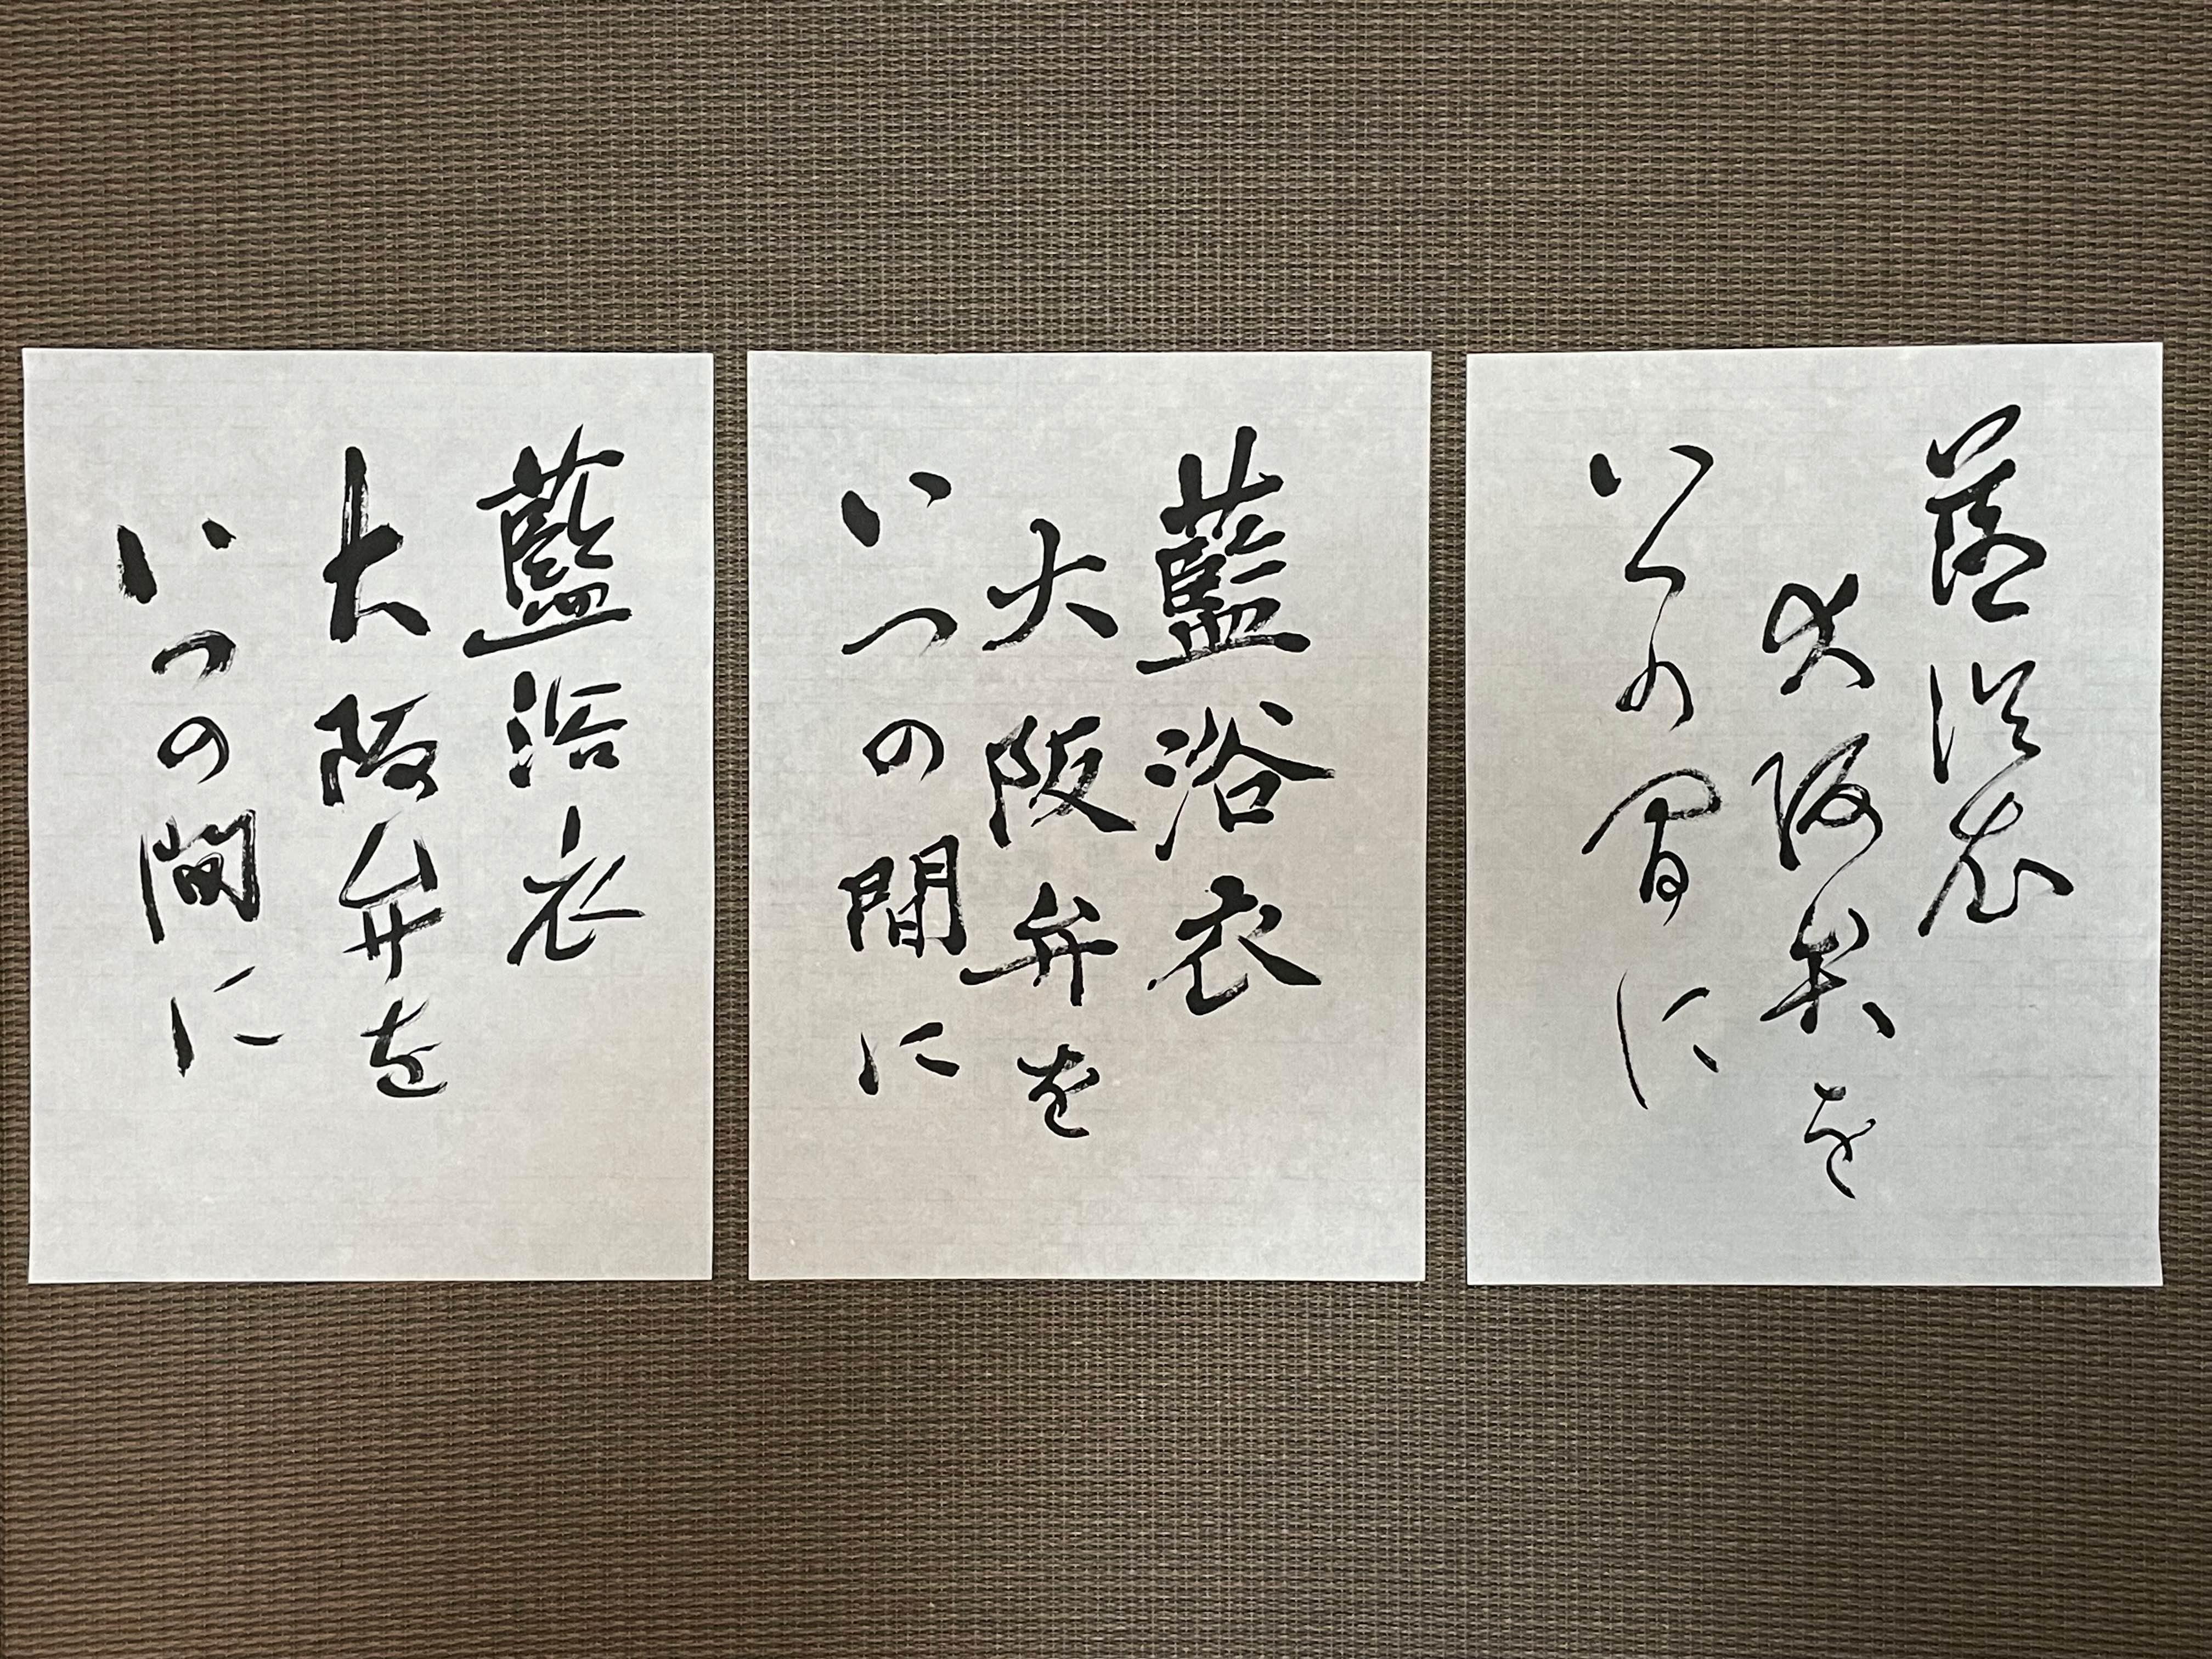 藍浴衣
大阪弁を
いつの間に
藍浴衣
大阪弁を
いつの間に
藍浴衣
大阪弁を
いつの間に